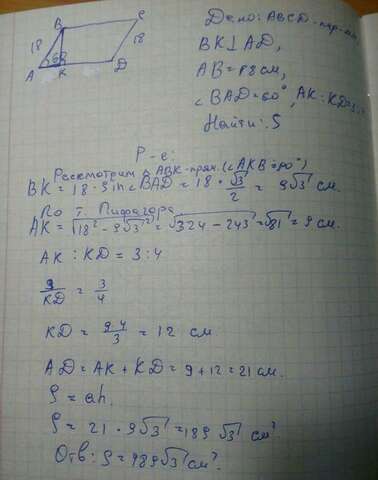 B C
18 60° 18
A K D
Дано: ABCD - пар-мм,
BK ⊥ AD,
AB = 18 см,
∠BAD = 60°, AK : KD = 3:
Найти: S
Р-е:
Рассмотрим △ ABK - прям. (∠AKB = 90°)
BK = 18 · sin ∠BAD = 18 · √3/2 = 9√3 см.
По т. Пифагора
AK = √18² - 9√3² = √324 - 243 = √81 = 9 см.
AK : KD = 3 : 4
9/KD = 3/4
KD = 9·4/3 = 12 см
AD = AK + KD = 9 + 12 = 21 см.
S = ah.
S = 21 · 9√3 = 189√3 см²
Отв: S = 989√3 см².